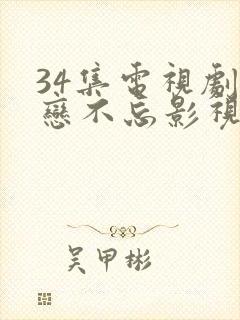 34集電視劇
戀不忘影視
吳甲彬